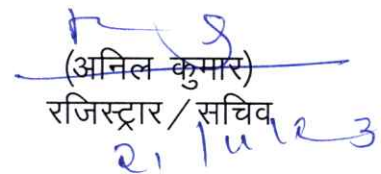 (अनिल कुमार)
रजिस्ट्रार / सचिव
21/11/23